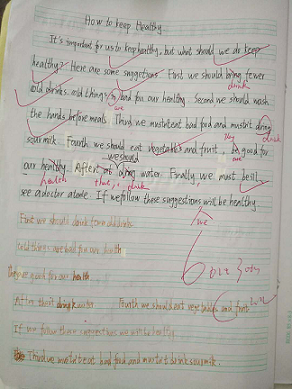 How to keep Healthy
It's important for us to keep healthy, but what should we do keep
healthy? Here are some suggestions. First we should bring fewer
drink
old drinks. old things is bad for our healthy. Second we should wash
are
the hands before meals. Third we mustn't eat bad food and mustn't dring
drink
sour milk. Fourth we should eat vegetables and fruit. be good for
they
are
our healthy. After that, dring water. Finally, we must be ill,
we should
health
drink
see a doctor at one. If we follow these suggestions will be healthy
we
First we should drink fewer old drinks
Cold things are bad for our health
They are good for our health
After that drink water Fourth we should eat vegetables and fruit
If we follow these suggestions we will be healthy
Third we mustn't eat bad food and mustn't drink sour milk.